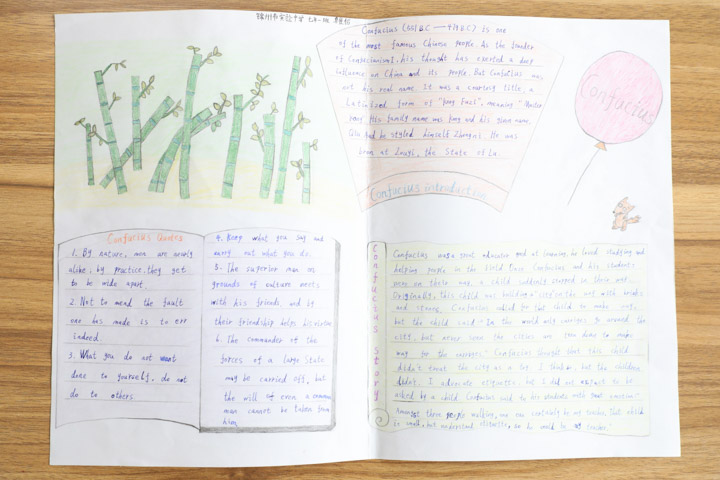 Confucius (551BC — 479BC) is one
of the most famous Chinese people. As the founder
of Confucianism, his thought has exerted a deep
influence on China and its people. But Confucius was
not his real name. It was a courtesy title, a
Latinized form of "Kong Fuzi", meaning "Master
Kong". His family name was Kong and his given name,
Qiu, and he styled himself Zhongni. He was
born at Zouyi, the State of Lu.
Confucius introduction
Confucius
Confucius Quotes
1. By nature, men are nearly
alike; by practice, they get
to be wide apart.
2. Not to mend the fault
one has made is to err
indeed.
3. What you do not want
done to yourself, do not
do to others
4. Keep what you say and
carry out what you do.
5. The superior man on
grounds of culture meets
with his friends, and by
their friendship helps his virtue
6. The commander of the
forces of a large State
may be carried off, but
the will of even a common
man cannot be taken from
him
Confucius Story
Confucius was a great educator and at learning, he loved studying and
helping people in the child. Once Confucius and his students
were on their way, a child suddenly
Originally, this child was building a with bricks
and stones. Confucius called for that child to make
but the child said: "In the world only carriages go around the
city, but never seen the cities are torn down to make
way for the carriers." Confucius thought that this child
didn't treat the city as a toy. I think so, but the children
didn't. I advocate etiquette, but I did not expect to be
asked by a child. Confucius said to his students with great emotion:"
Amongst three people walking, one can certainly be my teacher. That child
is small, but understand etiquette, can he could be my teacher."